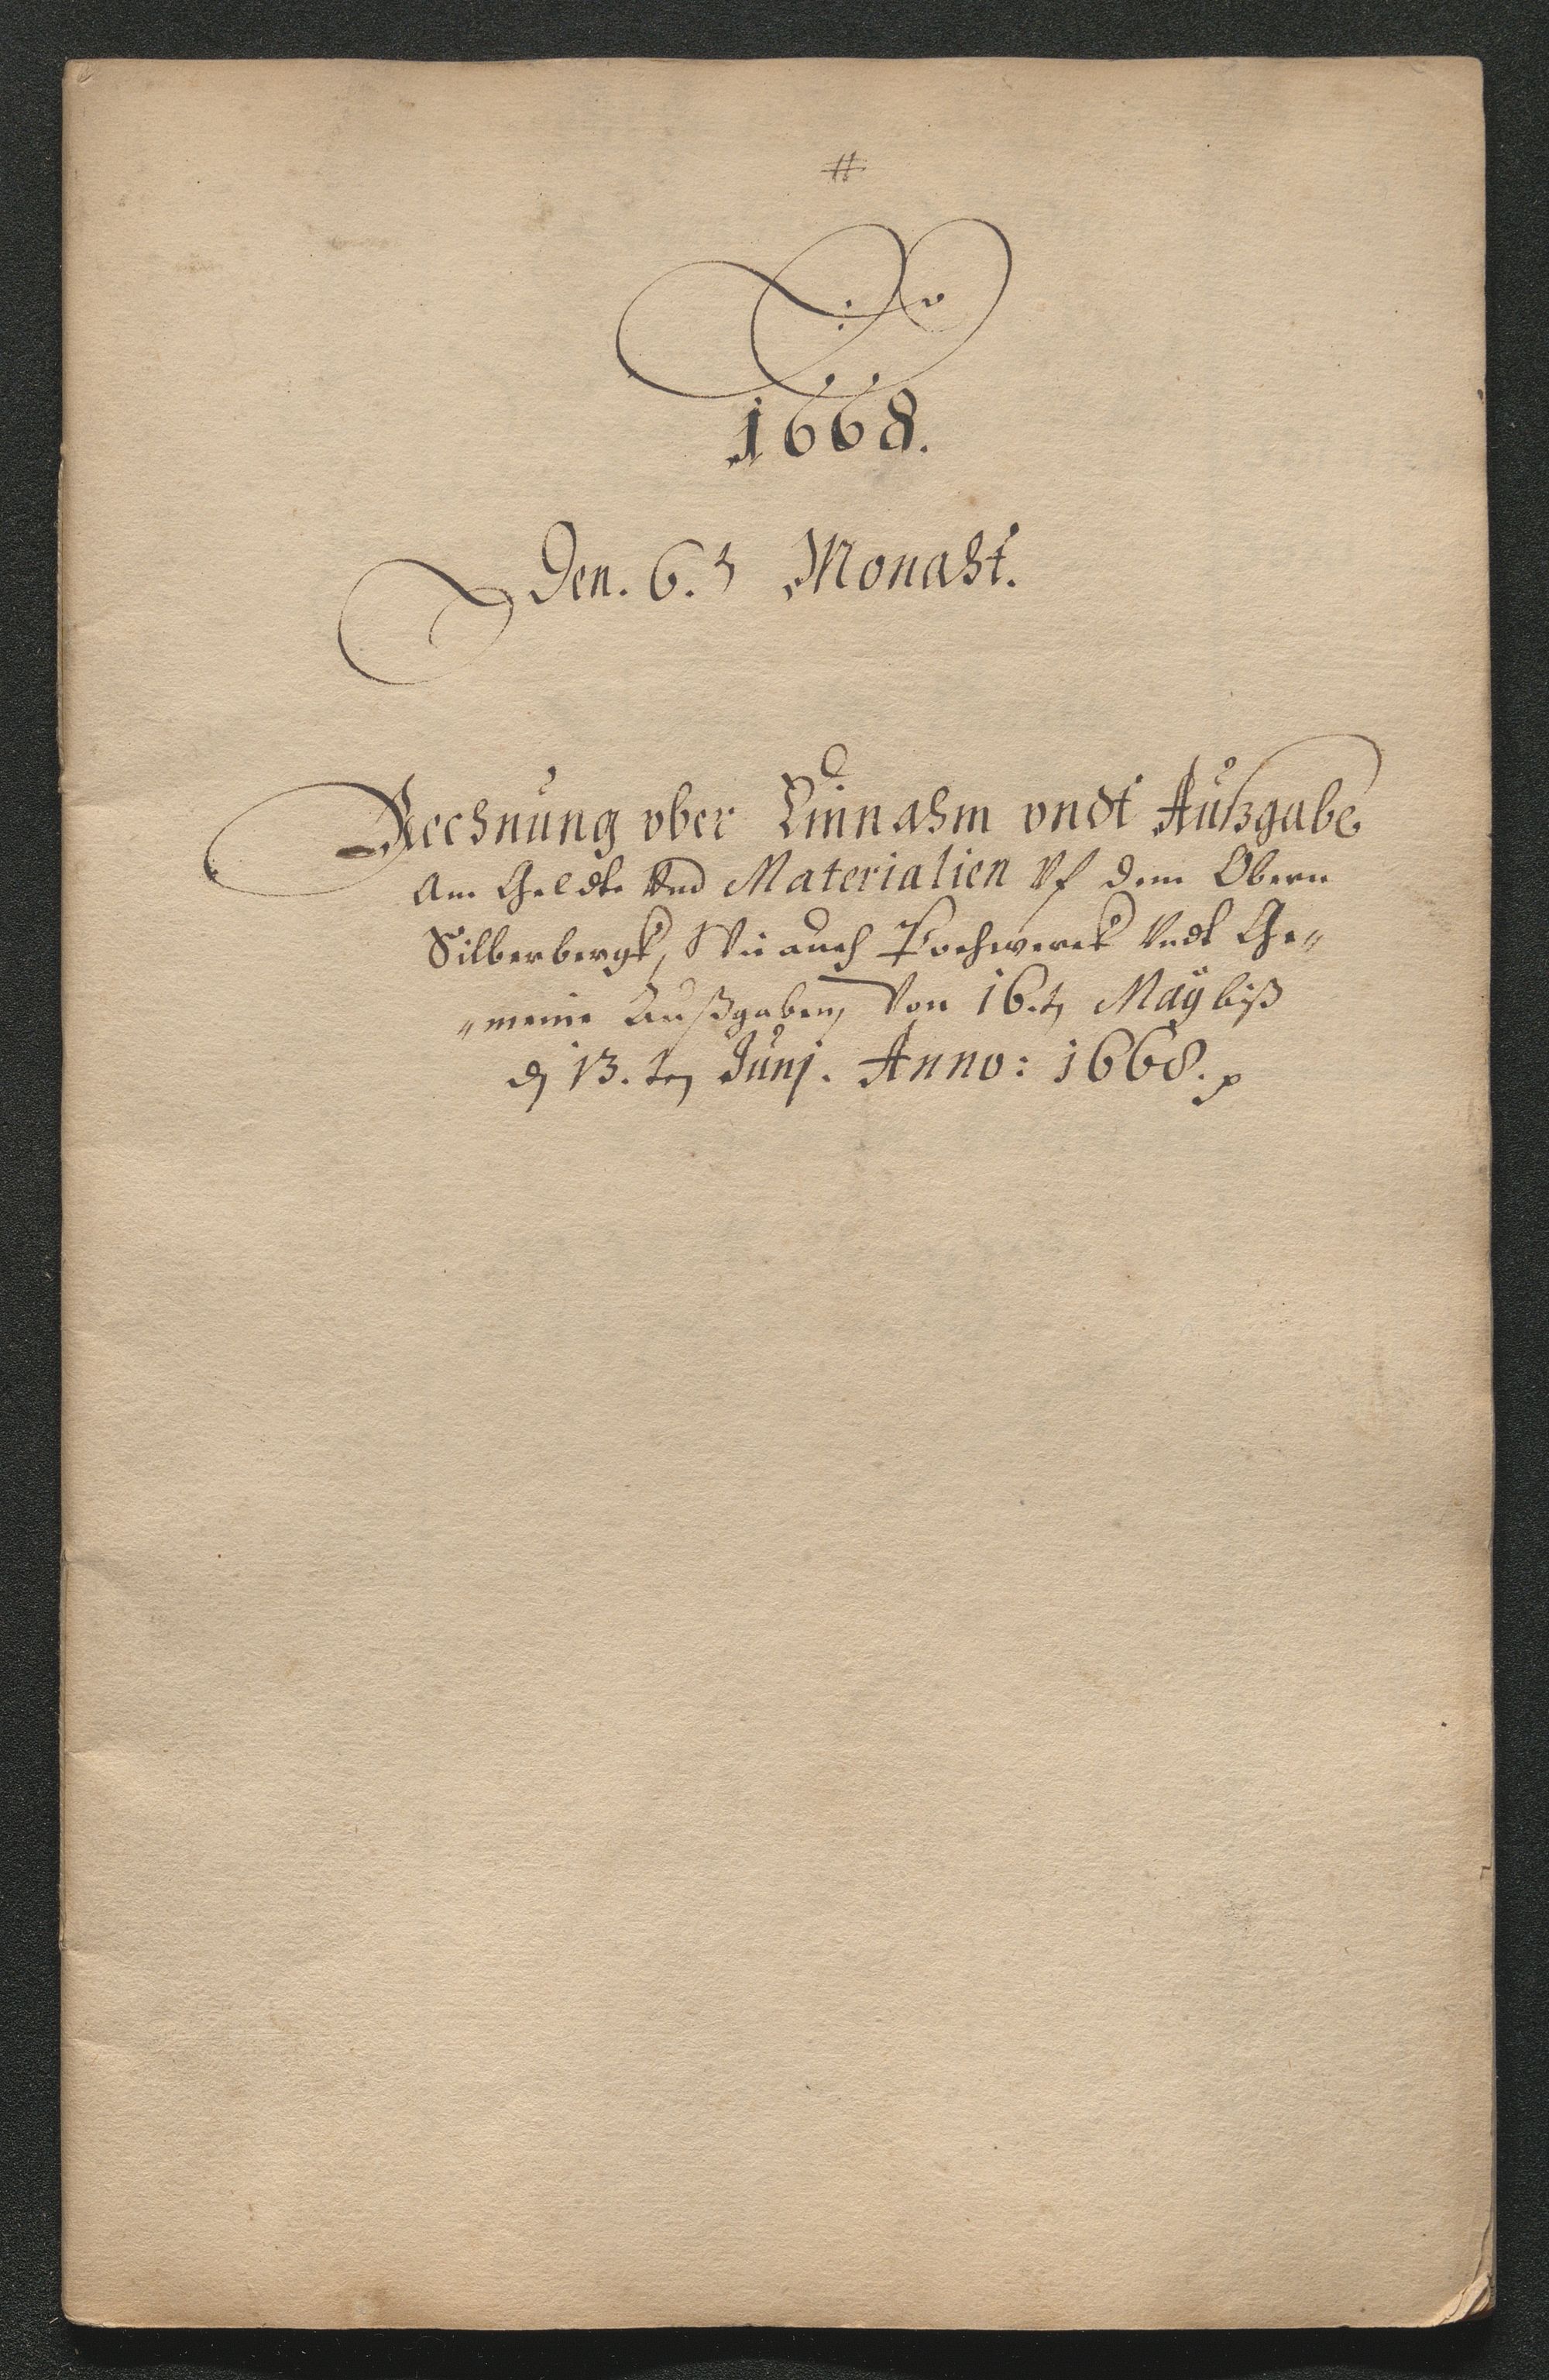 #
1668.
Den. 6.t Monaht.
Rechnung vber Einnahm vndt Außgabe
Am Geldte Vnd Materialien Vf dem Obern
Silberbergk, Wie auch Pochwerck Vndt Ge„
„meine Außgaben, Von 16.tn Maÿ biß
dn 13.ten Junj. Anno: 1668.